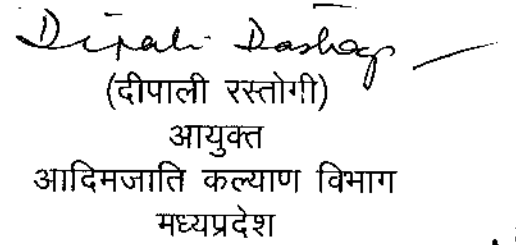 Dipali Rastogi
(दीपाली रस्तोगी)
आयुक्त
आदिमजाति कल्याण विभाग
मध्यप्रदेश